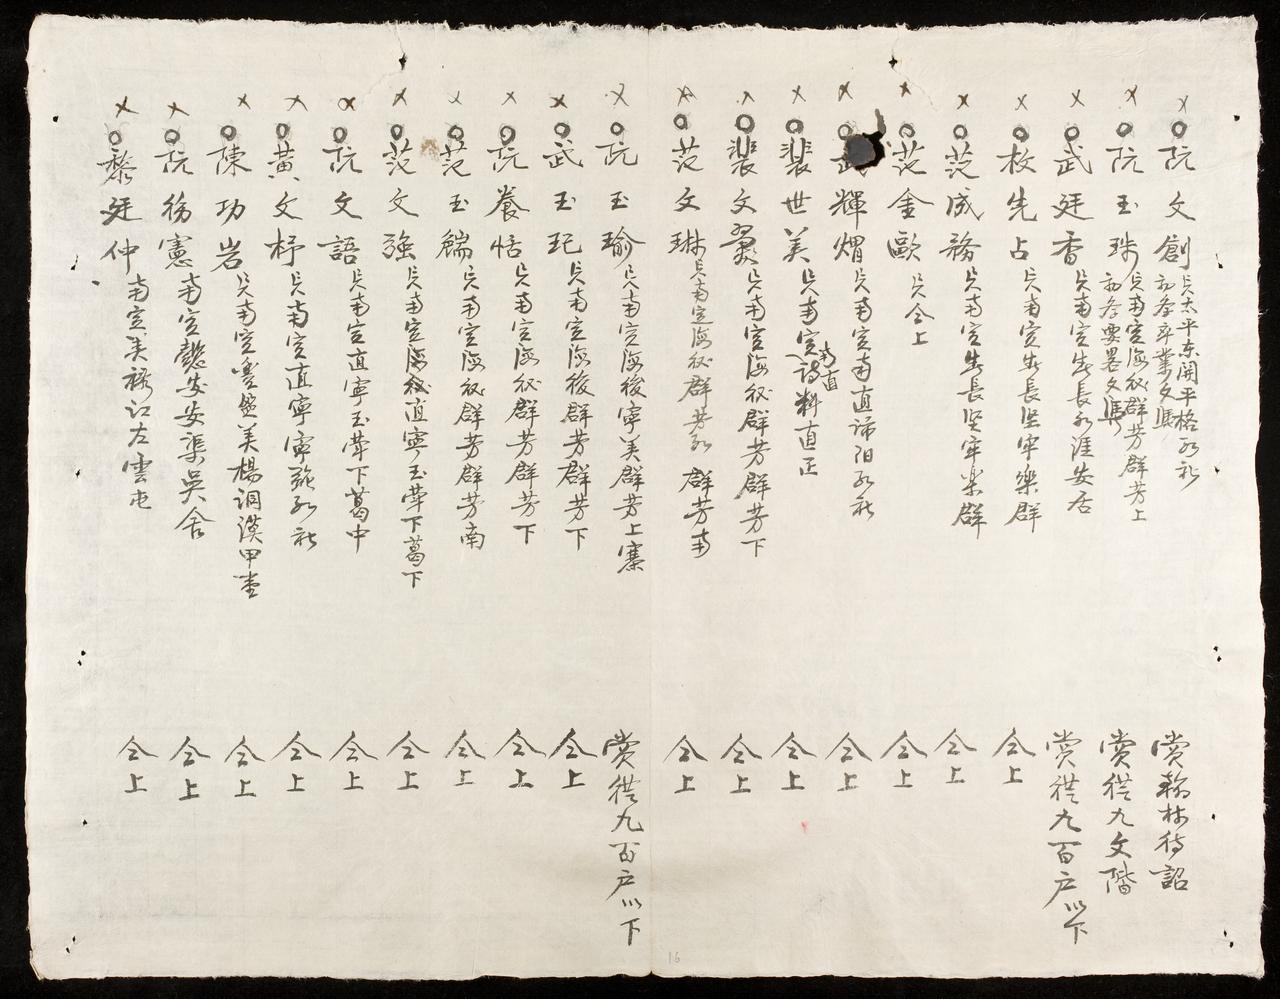 阮文創 貝太平東關平格 社
初 卒業文憑
賞翰林待詔
阮玉珠 貝南定海 群芳群芳上
初 要畧文憑
賞從九文階
武廷香 貝南定 長永涯安居
賞從九百户以下
枚先占 貝南定 長堅牢樂群
仝上
范成務 貝南定 長堅牢樂群
仝上
范金歐 貝仝上
仝上
武輝 貝南定南直 陽 社
仝上
裴世美 貝南定南直 料直正
仝上
裴文翼 貝南定海 群芳群芳下
仝上
范文琳 貝南定海 群芳 群芳南
仝上
阮玉瑜 貝南定海後寧美群芳上寨
賞從九百户以下
武玉玘 貝南定海後群芳群芳下
仝上
阮養恬 貝南定海 群芳群芳下
仝上
范玉 貝南定海 群芳群芳南
仝上
范文強 貝南定直寧玉 下葛下
仝上
阮文語 貝南定直寧玉 下葛中
仝上
黃文杼 貝南定直寧寧 社
仝上
陳功岩 貝南定豐盈美楊洞漠甲
仝上
阮 憲 南定懿安安渠吳舍
仝上
黎廷仲 南定美祿江左雲屯
仝上
16